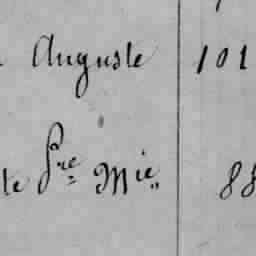 Auguste 101
te Pre Mie 88